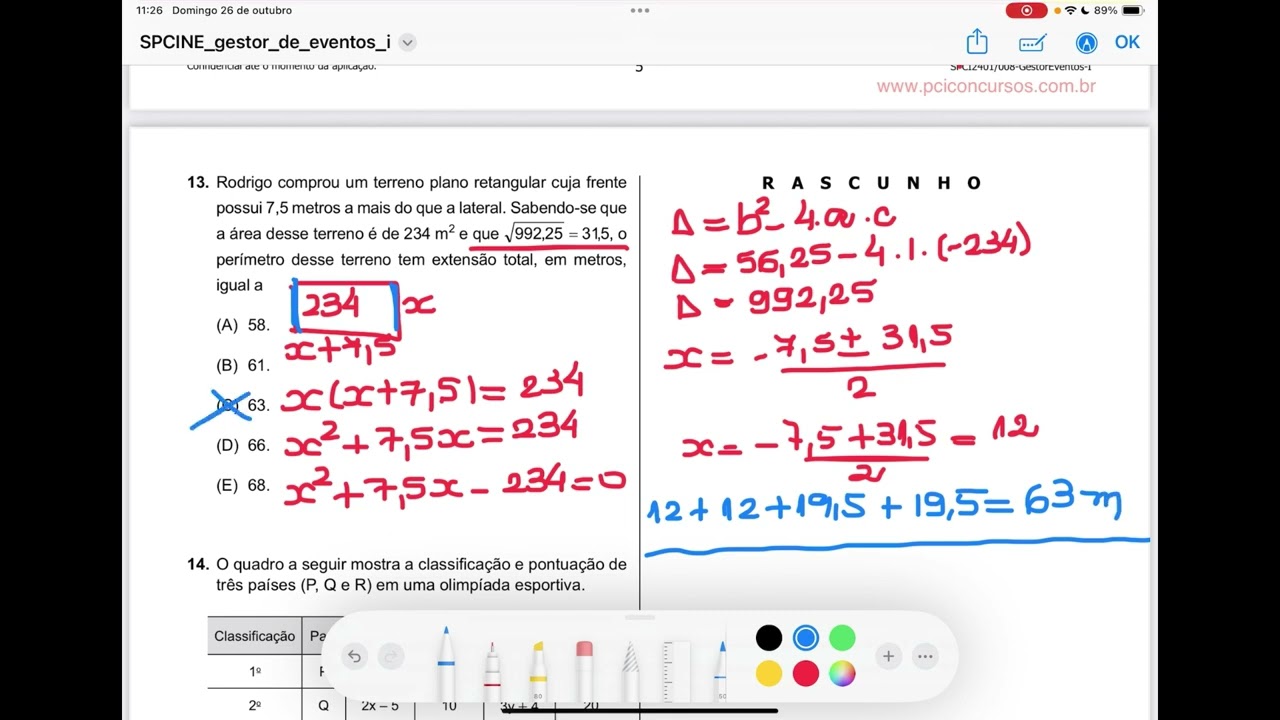 11:26 Domingo 26 de outubro
89%
SPCINE_gestor_de_eventos_i
OK
Confidencial até o momento da aplicação.
5
SPCI2401/008-GestorEventos-I
www.pciconcursos.com.br
13. Rodrigo comprou um terreno plano retangular cuja frente
possui 7,5 metros a mais do que a lateral. Sabendo-se que
a área desse terreno é de 234 m² e que √992,25 = 31,5, o
perímetro desse terreno tem extensão total, em metros,
igual a
234 x
(A) 58.
x+7,5
(B) 61.
(C) 63. x(x+7,5)=234
(D) 66. x²+7,5x=234
(E) 68. x²+7,5x-234=0
14. O quadro a seguir mostra a classificação e pontuação de
três países (P, Q e R) em uma olimpíada esportiva.
Classificação
1º
2º Q 2x – 5 10 3y + 4 20
R A S C U N H O
Δ = b² - 4.a.c
Δ = 56,25 - 4.1.(-234)
Δ = 992,25
x = -7,5 ± 31,5
2
x = -7,5 + 31,5 = 12
2
12 + 12 + 19,5 + 19,5 = 63 m
80
50